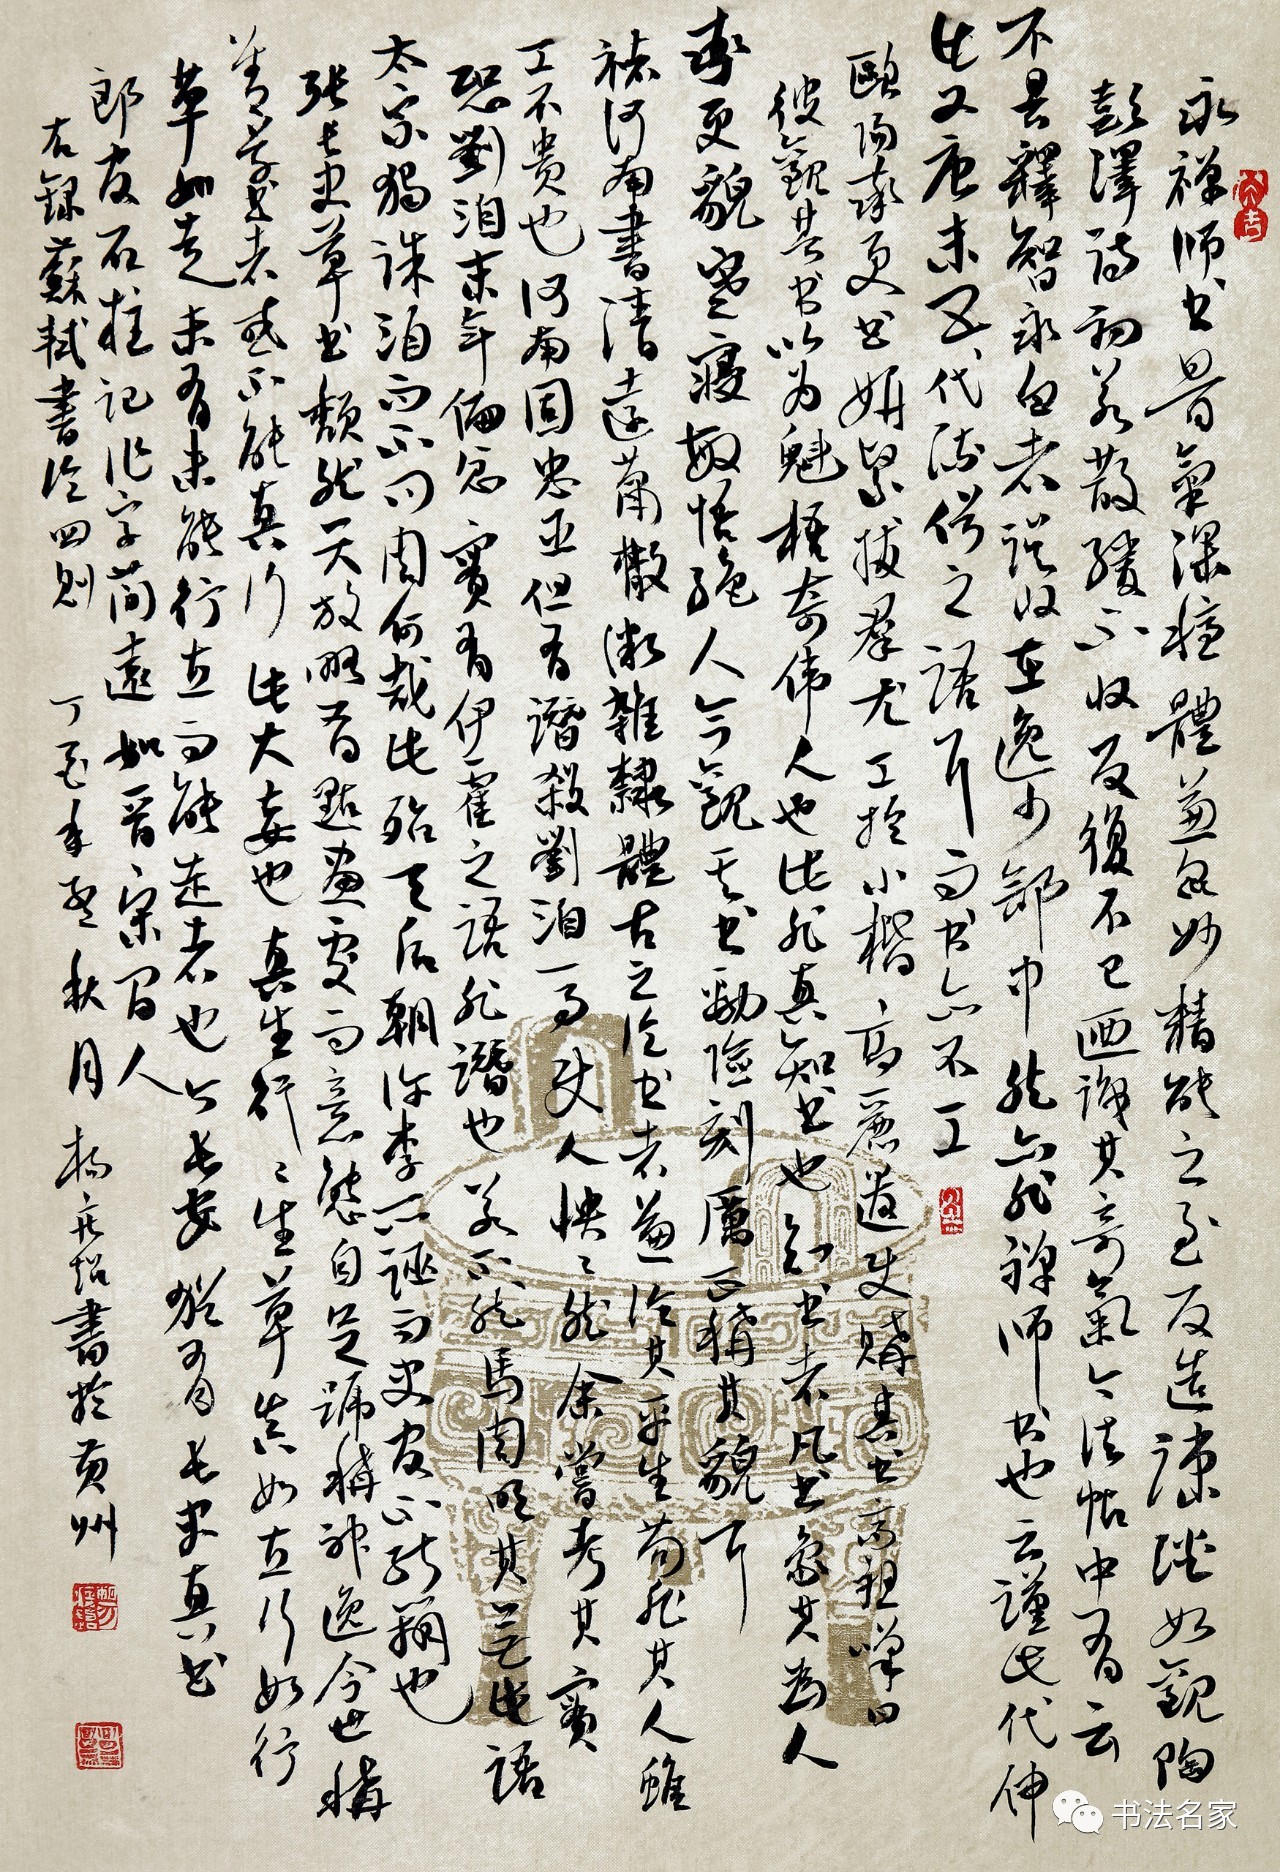 永禅师书骨气深稳體兼众妙精能之至反造疎淡如观陶
彭泽诗初若散缓不收反覆不已廼识其奇氣今法帖中有云
不具釋智永白者误收在逸少部中然亦非禅师书也云谨此代申
此又唐末五代流俗之语耳而书亦不工
歐阳率更书妍紧拔群尤工於小楷高丽遣使購其书高祖嘆曰
彼觀其书以为魁梧奇伟人也此非真知书也知书者凡书象其为人
率更貌寒寝敏悟绝人今觀其书勁險刻厲正稱其貌耳
褚河南書清遠蕭散微雜隸體古之论书者兼论其平生苟非其人雖
工不贵也河南固忠正但有譖殺劉洎一事使人怏怏然余嘗考其實
恐劉洎末年偏忿實有伊霍之語非譖也若不然馬周明其无此語
太宗獨誅洎而不问周何哉此殆天后朝许李所诬而史官不能辨也
张长史草书颓然天放略有點画處而意態自足號稱神逸今世稱
善草书者或不能真行此大妄也真生行行生草真如立行如行
草如走未有未能行立而能走者也今长安犹有长史真书
郎官石柱记作字简遠如晋宋间人
右録蘇軾書论四则
丁酉年 秋月 杨 書於黄州
书法名家